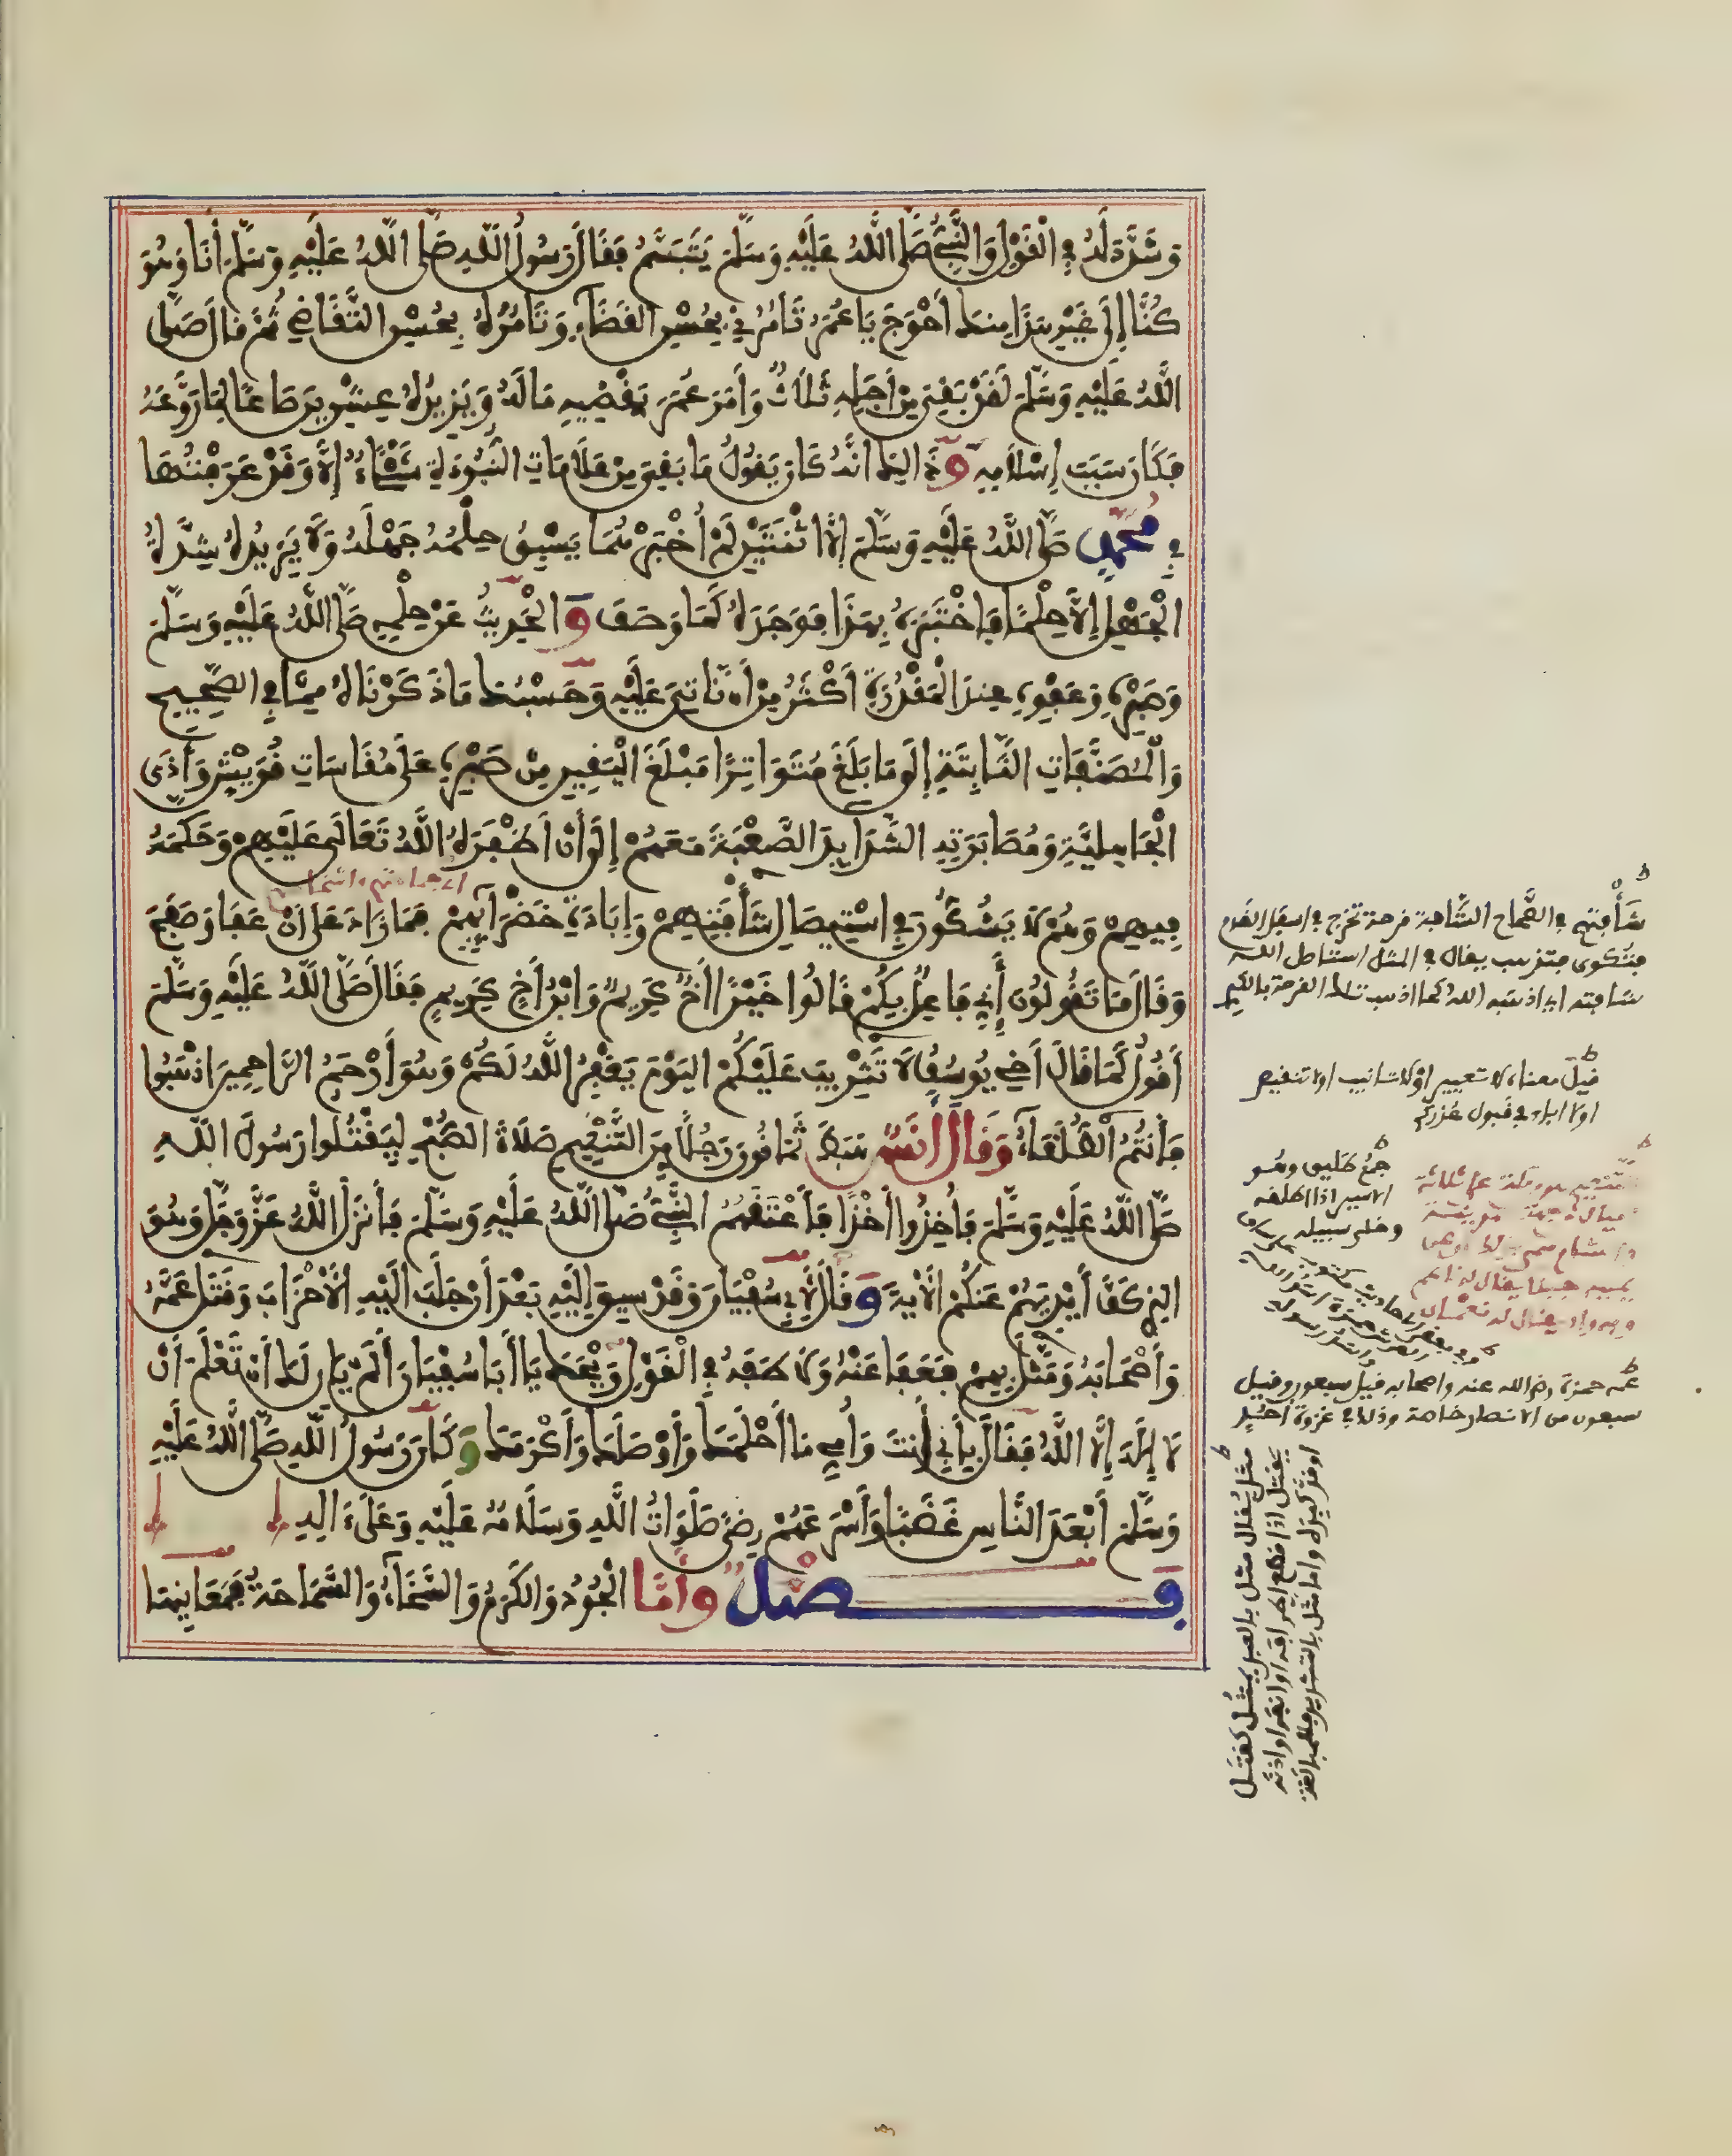 وَشَدَّدَ لَهُ فِي الْقَوْلِ وَالنَّبِيُّ صَلَّى اللَّهُ عَلَيْهِ وَسَلَّمَ يَتَبَسَّمُ فَقَالَ رَسُولُ اللَّهِ صَلَّى اللَّهُ عَلَيْهِ وَسَلَّمَ أَنَا وَهُوَ
كُنَّا إِلَى غَيْرِ هَذَا مِنكَ أَحْوَجَ يَا عُمَرُ تَأْمُرُنِي بِحُسْنِ الْقَضَاءِ وَتَأْمُرُهُ بِحُسْنِ التَّقَاضِي ثُمَّ قَالَ صَلَّى
اللَّهُ عَلَيْهِ وَسَلَّمَ لَقَدْ بَقِيَ مِنْ أَجَلِهِ ثَلَاثٌ وَأَمَرَ عُمَرَ يَقْضِيهِ مَالَهُ وَيَزِيدُهُ عِشْرِينَ صَاعًا لِمَا رَوَّعَهُ
فَكَانَ سَبَبَ إِسْلَامِهِ وَذَالِكَ انَّهُ كَانَ يَقُولُ مَا بَقِيَ مِنْ عَلَامَاتِ النُّبُوءَةِ شَيْءٌ إِلَّا وَقَدْ عَرَفْتُهَا
فِي مُحَمَّدٍ صَلَّى اللَّهُ عَلَيْهِ وَسَلَّمَ إِلَّا اثْنَتَيْنِ لَمْ أُخْبَرْهُمَا يَسْبِقُ حِلْمُهُ جَهْلَهُ وَلَا يَزِيدُهُ شِدَّةُ
الْجَهْلِ إِلَّا حِلْمًا فَاخْتَبَرَهُ بِهَذَا فَوَجَدَهُ كَمَا وَصَفَ وَالْحَدِيثُ عَنْ حِلْمِهِ صَلَّى اللَّهُ عَلَيْهِ وَسَلَّمَ
وَصَبْرِهِ وَعَفْوِهِ عِندَ الْمَقْدُرَةِ أَكْثَرُ مِنْ أَنْ نَاتِيَ عَلَيْهِ وَحَسْبُكَ مَا ذَكَرْنَاهُ مِمَّا فِي الصَّحِيحِ
وَالْمُصَنَّفَاتِ الثَّابِتَةِ إِلَى مَا بَلَغَ مُتَوَاتِرًا مَبْلَغَ الْيَقِينِ مِنْ صَبْرِهِ عَلَى مُقَاسَاتِ قُرَيْشٍ وَأَذَى
الْجَاهِلِيَّةِ وَمُصَابَرَتِهِ الشَّدَايِدَ الصَّعْبَةَ مَعَهُمْ إِلَى أَنْ أَظْفَرَهُ اللَّهُ تَعَالَى عَلَيْهِمْ وَحَكَّمَهُ
فِيهِمْ وَهُمْ لَا يَشُكُّونَ فِي اسْتِيصَالِ شَأْفَتِهِمْ وَإِبَادَةِ خَضْرَآئِهِمْ فَمَا زَادَ عَلَى أَنْ عَفَا وَصَفَحَ
وَقَالَ مَا تَقُولُونَ أَنِّي فَاعِلٌ بِكُمْ قَالُوا خَيْرًا أَخٌ كَرِيمٌ وَابْنُ أَخٍ كَرِيمٍ فَقَالَ صَلَّى اللَّهُ عَلَيْهِ وَسَلَّمَ
أَقُولُ كَمَا قَالَ أَخِي يُوسُفُ لَا تَثْرِيبَ عَلَيْكُمُ الْيَوْمَ يَغْفِرُ اللَّهُ لَكُمْ وَهُوَ أَرْحَمُ الرَّاحِمِينَ اذْهَبُوا
فَأَنتُمُ الطُّلَقَآءُ وَقَالَ أَنَسٌ هَبَطَ ثَمَانُونَ رَجُلًا مِنَ التَّنْعِيمِ صَلَاةَ الصُّبْحِ لِيَقْتُلُوا رَسُولَ اللَّهِ
صَلَّى اللَّهُ عَلَيْهِ وَسَلَّمَ فَأُخِذُوا أَخْذًا فَأَعْتَقَهُمُ النَّبِيُّ صَلَّى اللَّهُ عَلَيْهِ وَسَلَّمَ فَأَنزَلَ اللَّهُ عَزَّ وَجَلَّ وَهُوَ
الذِي كَفَّ أَيْدِيَهُمْ عَنكُمْ الْآيَةَ وَقَالَ لِأَبِي سُفْيَانَ وَقَدْ سِيقَ إِلَيْهِ بَعْدَ أَنْ جَلَبَ إِلَيْهِ الْأَحْزَابَ وَقَتَلَ عَمَّهُ
وَأَصْحَابَهُ وَمَثَّلَ بِهِمْ فَعَفَا عَنْهُ وَلَاطَفَهُ فِي الْقَوْلِ وَيْحَكَ يَا أَبَا سُفْيَانَ أَلَمْ يَانِ لَكَ أَنْ تَعْلَمَ أَنْ
لَا إِلَهَ إِلَّا اللَّهُ فَقَالَ بِأَبِي أَنتَ وَأُمِّي مَا أَحْلَمَكَ وَأَوْصَلَكَ وَأَكْرَمَكَ وَكَانَ رَسُولُ اللَّهِ صَلَّى اللَّهُ عَلَيْهِ
وَسَلَّمَ أَبْعَدَ النَّاسِ غَضَبًا وَأَسْرَعَهُمْ رِضًى صَلَوَاتُ اللَّهِ وَسَلَامُهُ عَلَيْهِ وَعَلَى ءَالِهِ
فَصْلٌ وَأَمَّا الْجُودُ وَالْكَرَمُ وَالسَّخَاءُ وَالسَّمَاحَةُ فَمَعَانِيهَا
شَأْفَتِهِمْ في الصَّحاح الشَّافة قرحة تخرج في اسفل القدم
فتكوى فتذهب يقال في المثل استاصل الله
شافته اي اذهبه الله كما اذهب تلك القرحة بالكي
قيل معناه لا تعيير او لا تانيب او لا تنقيص
او لا اباء في قبول عذركم
جمع طليق وهو
الاسير اذا اطلقه
وخلى سبيله
عمه حمزة رضي الله عنه واصحابه قيل سبعون وقيل
سبعون من الانصار خاصة وذلك في غزوة احد
مثل يقال مثل بالعبد يمثل كقتل
يقتل اذا قطع اطرافه او انفه او اذنه